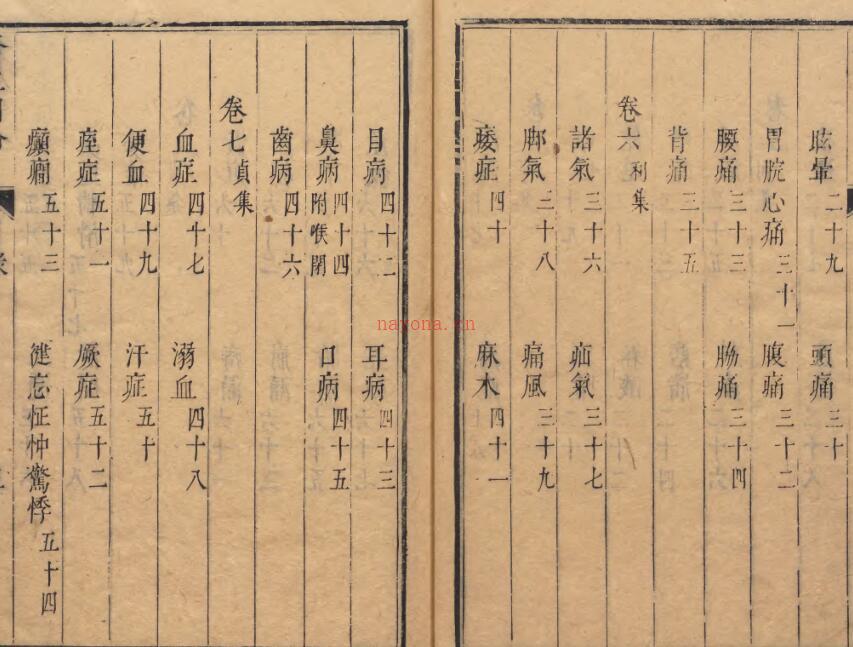 眩暈二十九 頭痛三十
胃脘心痛三十一 腹痛三十二
腰痛三十三 脇痛三十四
背痛三十五
卷六利集
諸氣三十六 疝氣三十七
脚氣三十八 痛風三十九
痿症四十 麻木四十一
目病四十二 耳病四十三
鼻病四十四附喉閉 口病四十五
齒病四十六
卷七貞集
血症四十七 溺血四十八
便血四十九 汗症五十
痓症五十一 厥症五十二
癲癇五十三 健忘怔忡驚悸五十四
nayona.cn